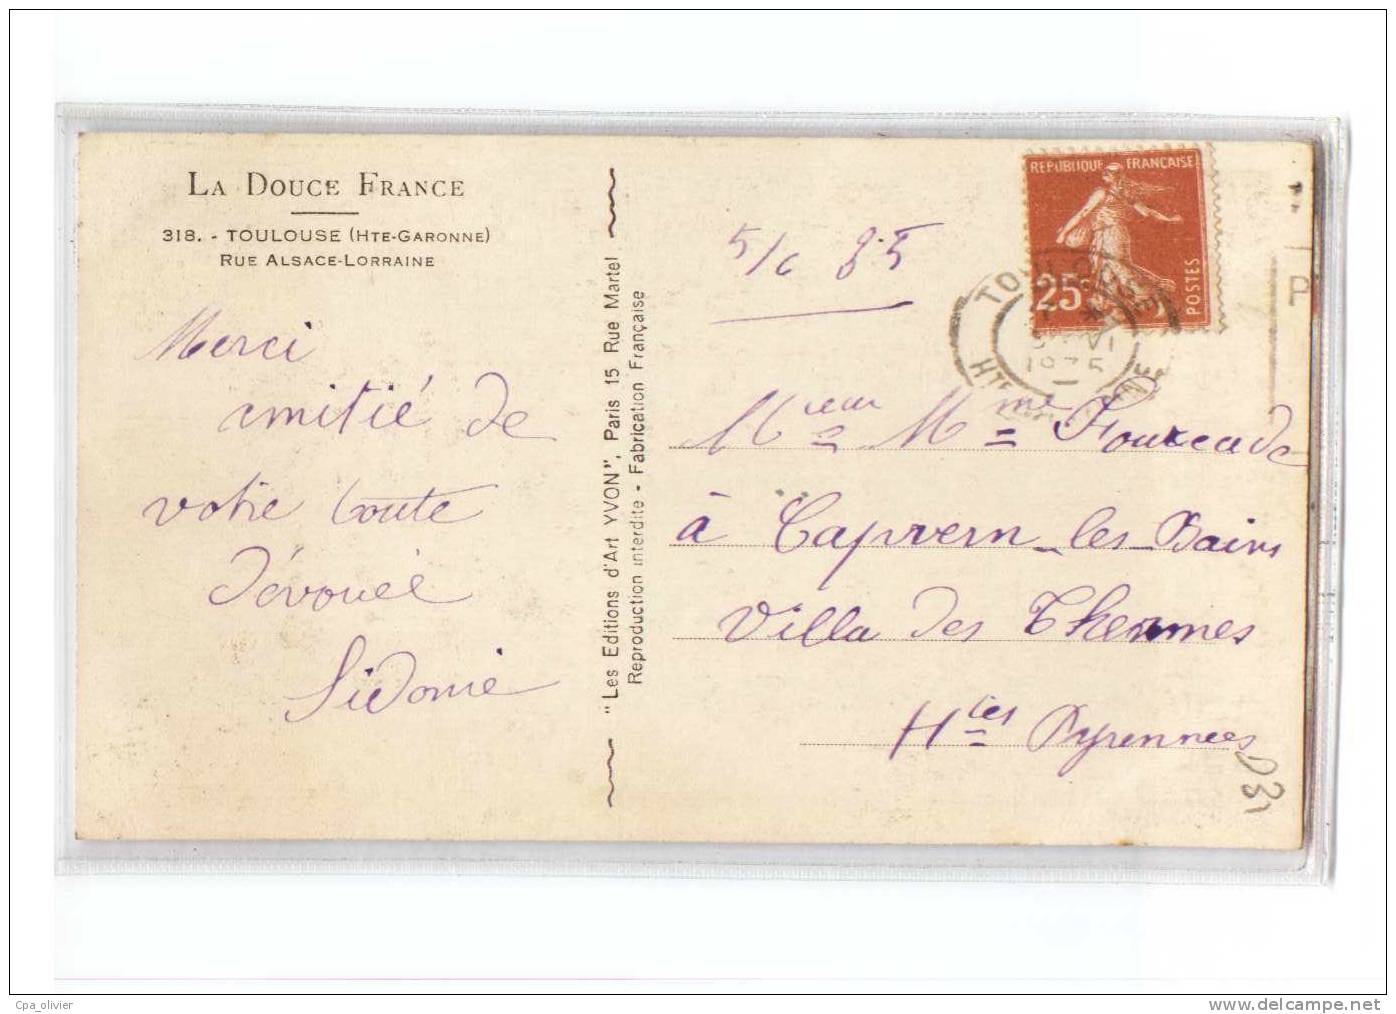 LA DOUCE FRANCE
318. - TOULOUSE (HTE-GARONNE)
RUE ALSACE-LORRAINE
Merci
amitié de
votre toute
dévouée
Sidonie
"Les Editions d'Art YVON", Paris 15 Rue Martel
Reproduction interdite - Fabrication Française
REPUBLIQUE FRANÇAISE
25
POSTES
TOULOUSE
1935
HTE GARONNE
P
5/6 35
Mr et Mme Fourcade
à Capvern-les-Bains
Villa des Thermes
Htes Pyrennees
D31
Cpa_olivier
delcampe.net